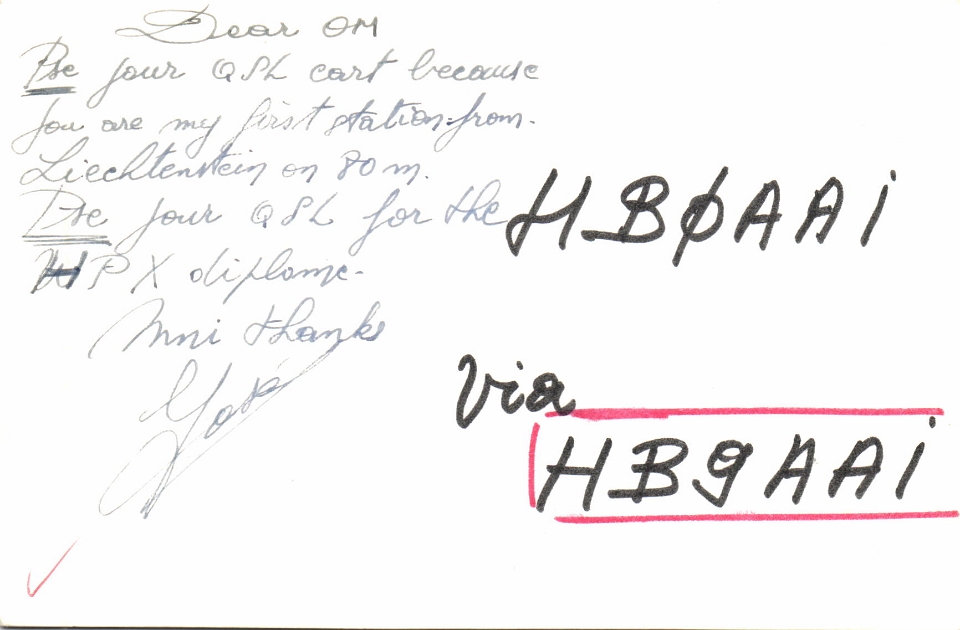 Dear OM
Pse your QSL cart because
you are my first station from
Liechtenstein on 80 m.
Pse your QSL for the
WPX diplome.
Mni thanks
HBØAAi
Via
HB9AAi